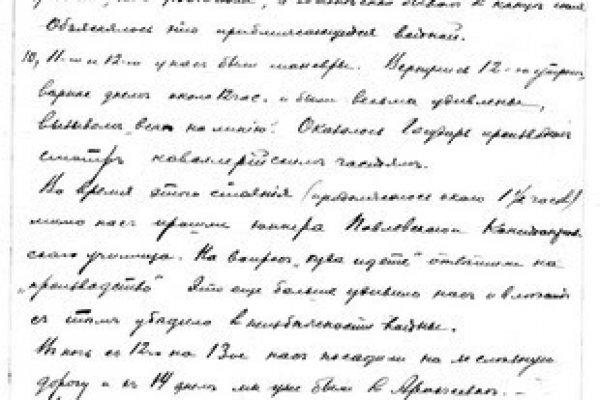 Объяснялось это приближающейся войной.
10, 11-го и 12-го у нас были маневры. Вернулись 12-го утром,
вернее днем около 12 час. и были весьма удивлены,
вызывом „всех на линию". Оказалось Государь производил
смотр кавалерийским частям.
Во время этого стояния (продолжалось около 1½ часов)
мимо нас прошли юнкера Павловского Константинов-
ского училища. На вопрос „куда идете" отвечали на
„производство" Это еще больше удивило нас и вместе
с тем убедило в неизбежности войны.
В ночь с 12-го на 13-ое нас посадили на железную
дорогу и в 14 днем мы уже были в